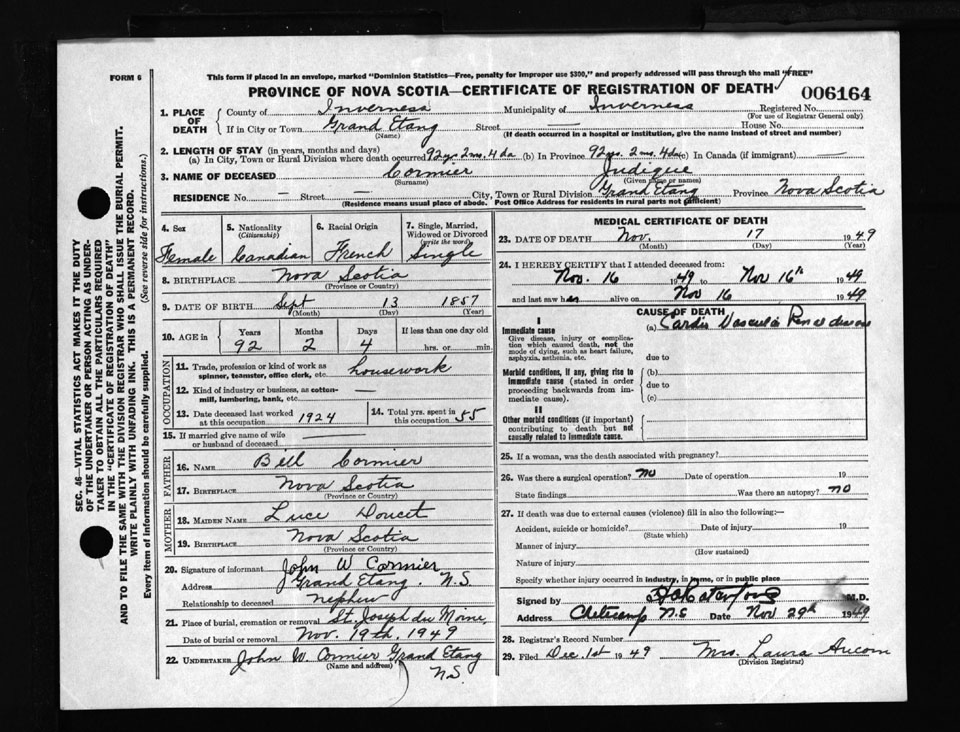 FORM 6
This form if placed in an envelope, marked "Dominion Statistics—Free, penalty for improper use $300," and properly addressed will pass through the mail "FREE"
PROVINCE OF NOVA SCOTIA—CERTIFICATE OF REGISTRATION OF DEATH
006164
1. PLACE OF DEATH
County of Inverness Municipality of Inverness Registered No.
(For use of Registrar General only)
If in City or Town Grand Etang Street — House No.
(Name) (If death occurred in a hospital or institution, give the name instead of street and number)
2. LENGTH OF STAY (in years, months and days)
(a) In City, Town or Rural Division where death occurred 92 yrs 2 ms. 4 da (b) In Province 92 yrs. 2 ms. 4 da (c) In Canada (if immigrant) —
3. NAME OF DECEASED Cormier Judique
(Surname) (Given name or names)
RESIDENCE No. — Street — City, Town or Rural Division Grand Etang Province Nova Scotia
(Residence means usual place of abode. Post Office Address for residents in rural parts not sufficient)
4. Sex Female
5. Nationality (Citizenship) Canadian
6. Racial Origin French
7. Single, Married, Widowed or Divorced (write the word) Single
8. BIRTHPLACE Nova Scotia
(Province or Country)
9. DATE OF BIRTH Sept 13 1857
(Month) (Day) (Year)
10. AGE in Years Months Days If less than one day old
92 2 4 hrs. or min.
OCCUPATION
11. Trade, profession or kind of work as spinner, teamster, office clerk, etc. housework
12. Kind of industry or business, as cotton-mill, lumbering, bank, etc.
13. Date deceased last worked at this occupation 1924
14. Total yrs. spent in this occupation 55
15. If married give name of wife or husband of deceased
FATHER
16. NAME Bell Cormier
17. BIRTHPLACE Nova Scotia
(Province or Country)
MOTHER
18. MAIDEN NAME Luce Doucet
19. BIRTHPLACE Nova Scotia
(Province or Country)
20. Signature of informant John W Cormier
Address Grand Etang. N.S.
Relationship to deceased nephew
21. Place of burial, cremation or removal St. Joseph du Moine,
Date of burial or removal Nov. 19th, 1949
22. UNDERTAKER John W. Cormier Grand Etang
(Name and address) N.S.
MEDICAL CERTIFICATE OF DEATH
23. DATE OF DEATH Nov. 17 1949
(Month) (Day) (Year)
24. I HEREBY CERTIFY that I attended deceased from:
Nov. 16 1949 to Nov 16th 1949
and last saw her alive on Nov 16 1949
CAUSE OF DEATH
I
Immediate cause
Give disease, injury or complication which caused death, not the mode of dying, such as heart failure, asphyxia, asthenia, etc.
(a) Cardio Vascular Renal disease
due to
Morbid conditions, if any, giving rise to immediate cause (stated in order proceeding backwards from immediate cause).
(b)
due to
(c)
II
Other morbid conditions (if important) contributing to death but not causally related to immediate cause.
25. If a woman, was the death associated with pregnancy?
26. Was there a surgical operation? no Date of operation 19
State findings Was there an autopsy? no
27. If death was due to external causes (violence) fill in also the following:—
Accident, suicide or homicide? Date of injury 19
(State which)
Manner of injury
(How sustained)
Nature of injury
Specify whether injury occurred in industry, in home, or in public place
Signed by M.D.
Address Cheticamp N.S Date Nov 29th 1949
28. Registrar's Record Number
29. Filed Dec. 1st 1949 Mrs. Laura Aucoin
(Division Registrar)
SEC. 46—VITAL STATISTICS ACT MAKES IT THE DUTY
OF THE UNDERTAKER OR PERSON ACTING AS UNDER-
TAKER TO OBTAIN ALL THE PARTICULARS REQUIRED
IN THE "CERTIFICATE OF REGISTRATION OF DEATH"
AND TO FILE THE SAME WITH THE DIVISION REGISTRAR WHO SHALL ISSUE THE BURIAL PERMIT.
WRITE PLAINLY WITH UNFADING INK. THIS IS A PERMANENT RECORD.
Every item of information should be carefully supplied. (See reverse side for instructions.)